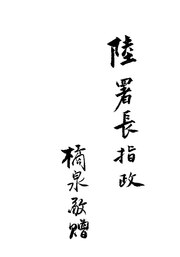 陸署長指政
橘泉敬贈